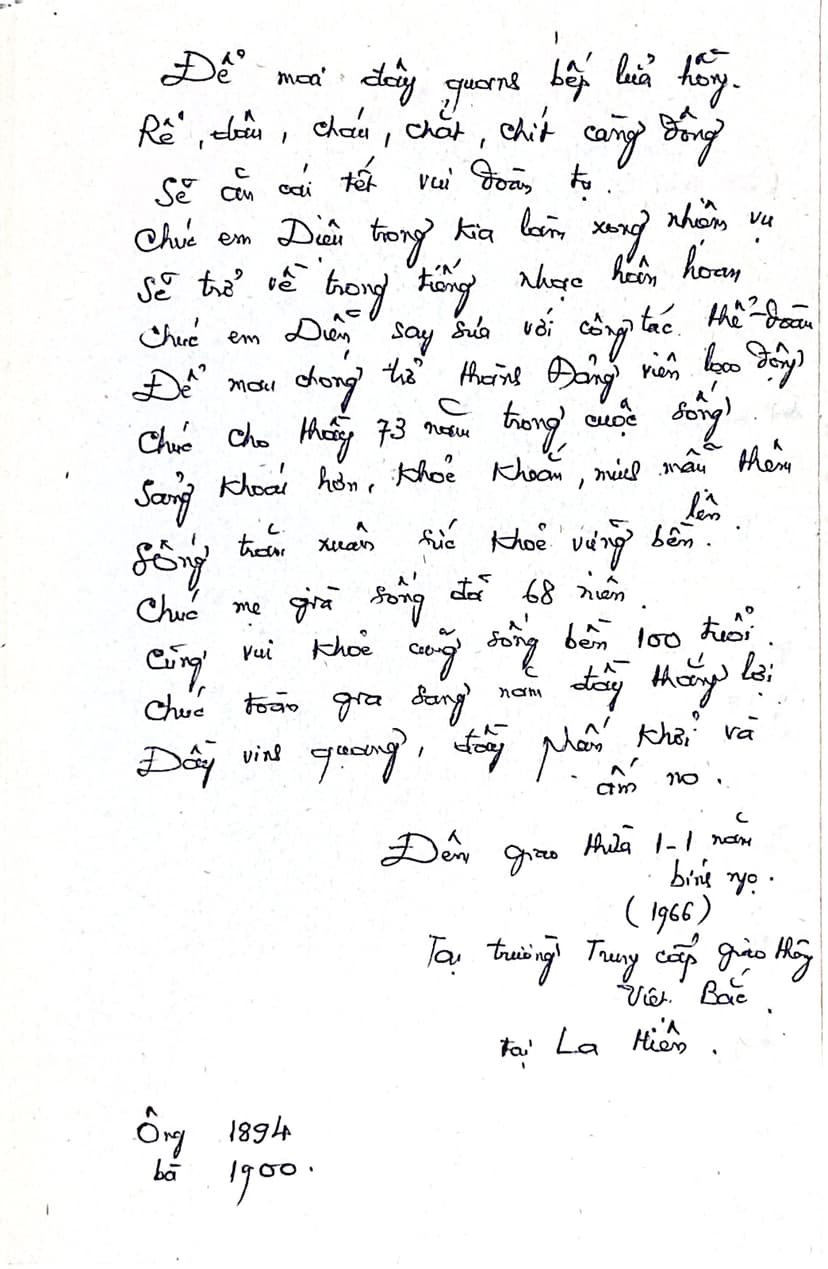 Để mai đây quanh bếp lửa hồng.
Rể, dâu, cháu, chắt, chít càng đông
Sẽ ăn cái tết vui đoàn tụ.
Chúc em Diệu trong kia làm xong nhiệm vụ
Sẽ trở về trong tiếng nhạc hân hoan
Chúc em Diễn say sưa với công tác thể-đoàn
Để mau chóng trở thành Đảng viên lao động
Chúc cho thầy 73 năm trong cuộc sống
Sảng khoái hơn, khoẻ khoắn, mẫu thêm
Sống trăm xuân sức khoẻ vững bền lên.
Chúc mẹ già sống đã 68 niên.
Cũng vui khoẻ cũng sống bền 100 tuổi.
Chúc toàn gia sang năm đầy thắng lợi
Đầy vinh quang, đầy phấn khởi và
ấm no.
Đêm giao thừa 1-1 năm
bính ngọ.
(1966)
Tại trường Trung cấp giao thông
Việt Bắc.
tại La Hiên.
Ông 1894
bà 1900.